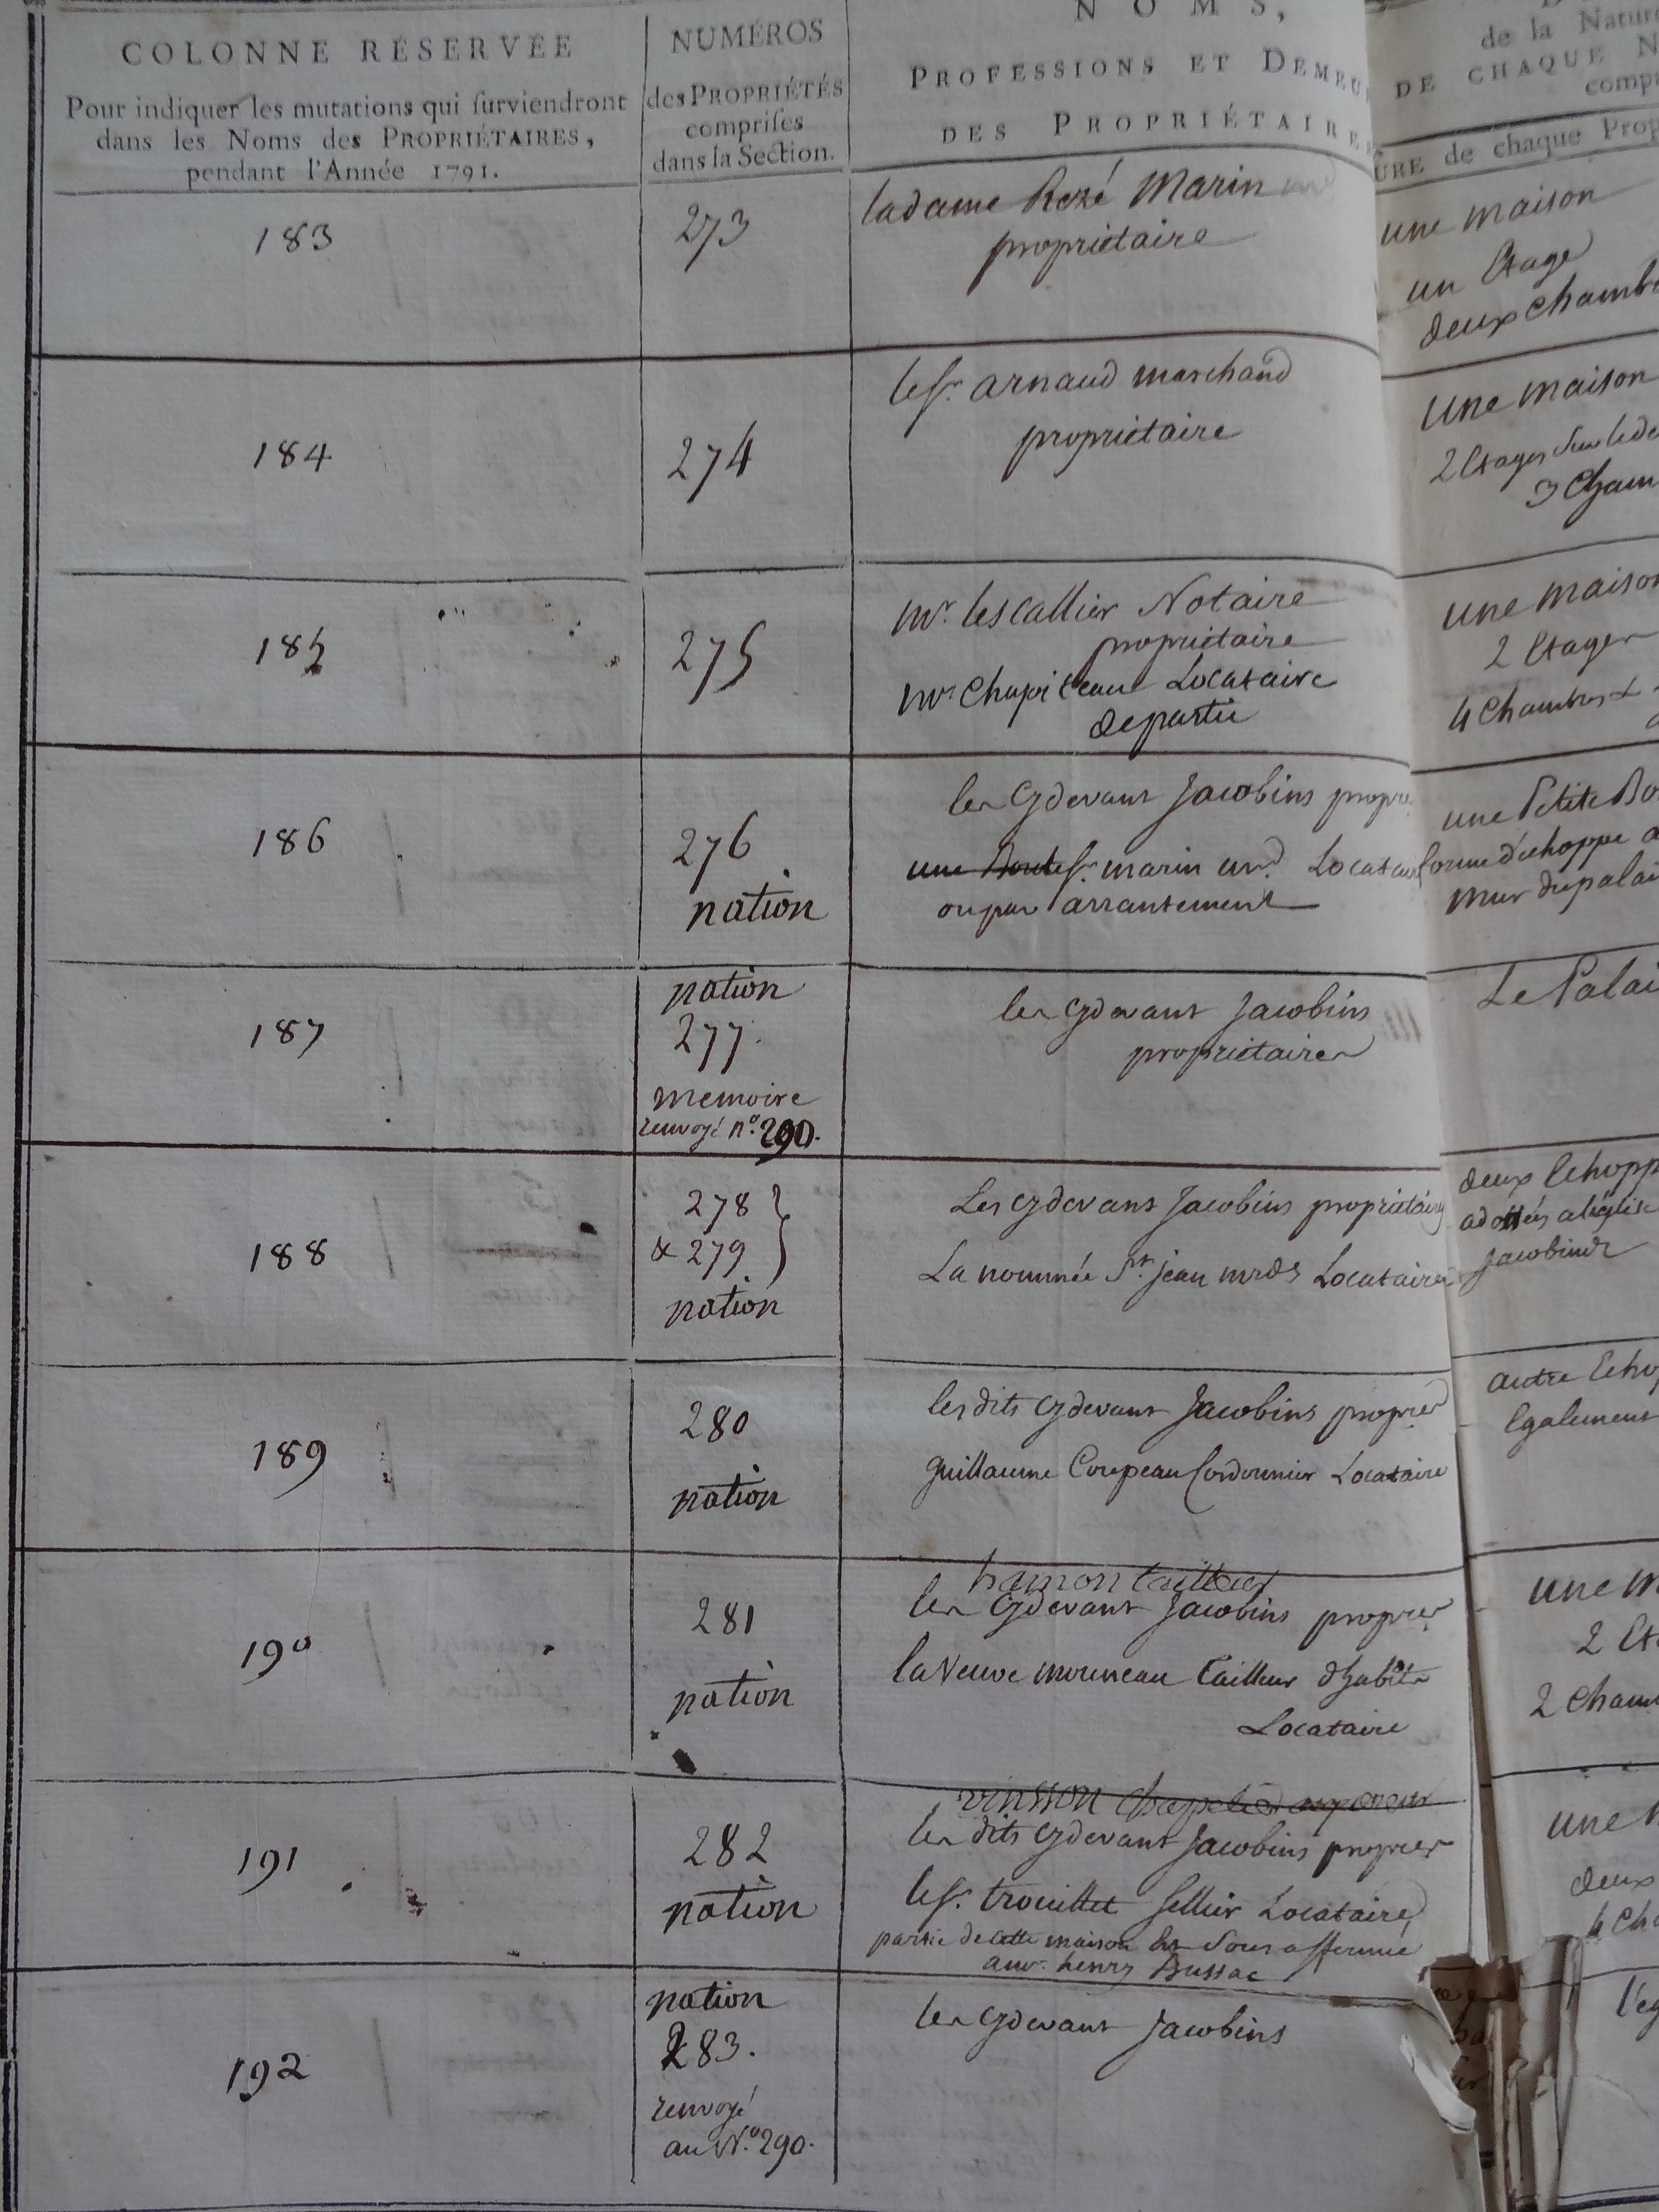 COLONNE RÉSERVÉE
Pour indiquer les mutations qui surviendront
dans les Noms des PROPRIÉTAIRES,
pendant l'Année 1791.
NUMÉROS
des PROPRIÉTÉS
comprises
dans la Section.
NOMS,
PROFESSIONS ET DEMEU
DES PROPRIÉTAIRE
de la Natur
DE CHAQUE N
comp
URE de chaque Prop
183
273
ladame Rozé Marin
propriétaire
une maison
un Etage
deux chamb
184
274
le Sr. arnaud marchand
propriétaire
une maison
2 Etages
3 Cham
185
275
Mr. lescallier Notaire
propriétaire
Mr Chapiteau Locataire
de partie
une maison
2 Etages
4 Chambres
186
276
nation
les Cydevant Jacobins propre
une Sr. marin Locatai
ou par arrantement
une Petite Bo
forme d'échoppe a
mur du palai
187
nation
277.
memoire
renvoyé n.º 290.
les cydevant Jacobins
propriétaires
Le Palai
188
278
& 279
nation
Les cydevant Jacobins propriétaires
La nommée St. jean mrde Locataires
deux Echopp
adossés a léglise
Jacobinde
189
280
nation
les dits cydevant Jacobins proprier
guillaume Coupeau Cordonnier Locataire
autre Echop
Egalement
190
281
nation
hamon tailleur
les Cydevant Jacobins proprier
la Veuve mouneau tailleur d'habits
Locataire
une m
2 Et
2 Cham
191
282
nation
vinsson
les dits cydevant Jacobins proprier
le Sr. trouillet Sellier Locataire
partie de cette maison Est Sous affermé
au Sr. henry Bussac
une
deux
4 Cha
192
nation
283.
renvoyé
au N.º 290.
les cydevant Jacobins
l'eg